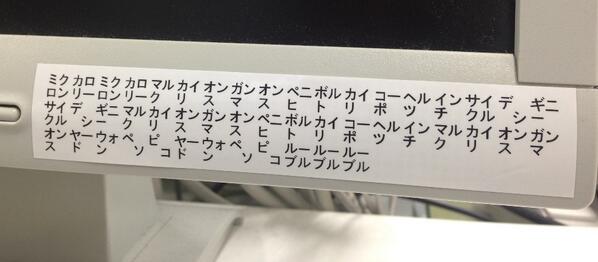 ミクロンカロリーミクロンカロリーマルクカイリオンスガンマオンスペニヒボルトカイリコーポヘルツインチサイクルデシギニー
サイクルデシギニーマルクカイリオンスガンマオンスペニヒボルトカイリコーポヘルツインチマルクカイリオンスガンマ
オンスヤードウォンペソピコヤードウォンペソピコルーブルルーブルルーブル